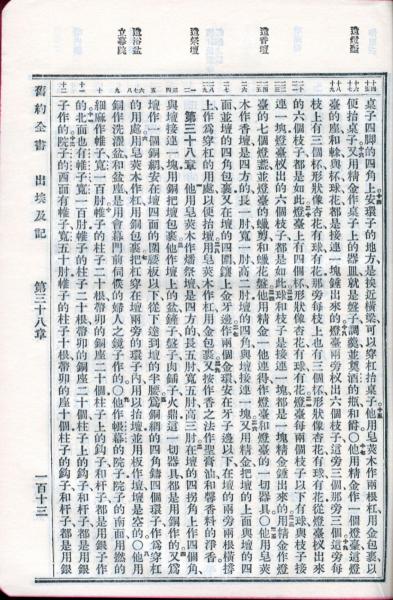 造燈臺
造香壇
造祭壇
造浴盆
立幕院
桌子四脚的四角上安環子的地方是挨近橫梁可以穿杠抬桌子他用皂莢木作兩根杠用金包裹以
便抬桌子又用精金作桌子上的器皿就是盤子調羹並奠酒的瓶和爵○他用精金作一個燈臺這燈
臺的座和榦與杯球花都是接連一塊錘出來的燈臺兩旁杈出六個枝子這旁三個那旁三個這旁每
枝上有三個杯形狀像杏花有球有花那旁每枝上也有三個杯形狀像杏花有球有花從燈臺杈出來
的六個枝子都是如此燈臺上有四個杯形狀像杏花有球有花燈臺每兩個枝子以下有球與枝子接
連一塊燈臺杈出的六個枝子都是如此球和枝子是接連一塊都是一塊精金錘出來的用精金作燈
臺的七個燈盞並燈臺的蠟剪和蠟花盤他用精金一他連得作燈臺和燈臺的一切器具○他用皂莢
木作香壇是四方的長一肘寬一肘高二肘壇的四角與壇接連一塊又用精金把壇的上面與壇的四
面並壇的四角包裹又在壇的四圍鑲上金牙邊作兩個金環安在牙子邊以下在壇的兩旁兩根橫撐
上作爲穿杠的用處以便抬壇用皂莢木作杠用金包裹又按作香之法作聖膏油和馨香料的淨香
第三十八章 他用皂莢木作燔祭壇是四方的長五肘寬五肘高三肘在壇的四拐角上作四個角
與壇接連一塊用銅把壇包裹他作壇上的盆鏟子盤子肉鍤子火鼎這一切器具都是用銅作的又爲
壇作一個銅網安在壇四面的圍腰板以下從下達到壇的半腰爲銅網的四角鑄四個環子作爲穿杠
的用處用皂莢木作杠用銅包裹把杠穿在壇兩旁的環子內用以抬壇並用板作壇壇是空的○他用
銅作洗濯盆和盆座是用會幕門前伺候的婦人之鏡子作的○他作帳幕的院子院子的南面用撚的
細麻作帷子寬一百肘帷子的柱子二十根帶卯的銅座二十個柱子上的鈎子和杆子都是用銀子作
的北面也有帷子寬一百肘帷子的柱子二十根帶卯的銅座二十個柱子上的鈎子和杆子都是用銀
子作的院子的西面有帷子寬五十肘帷子的柱子十根帶卯的座十個柱子的鈎子和杆子都是用銀
舊約全書 出埃及記 第三十八章 一百十三